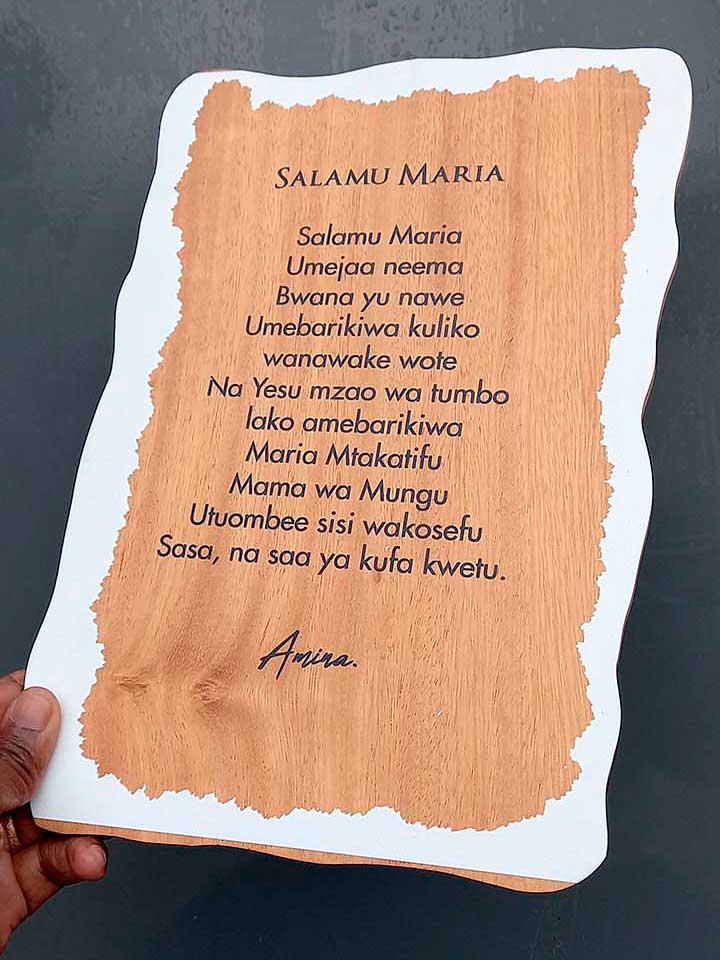 SALAMU MARIA
Salamu Maria
Umejaa neema
Bwana yu nawe
Umebarikiwa kuliko
wanawake wote
Na Yesu mzao wa tumbo
lako amebarikiwa
Maria Mtakatifu
Mama wa Mungu
Utuombee sisi wakosefu
Sasa, na saa ya kufa kwetu.
Amina.